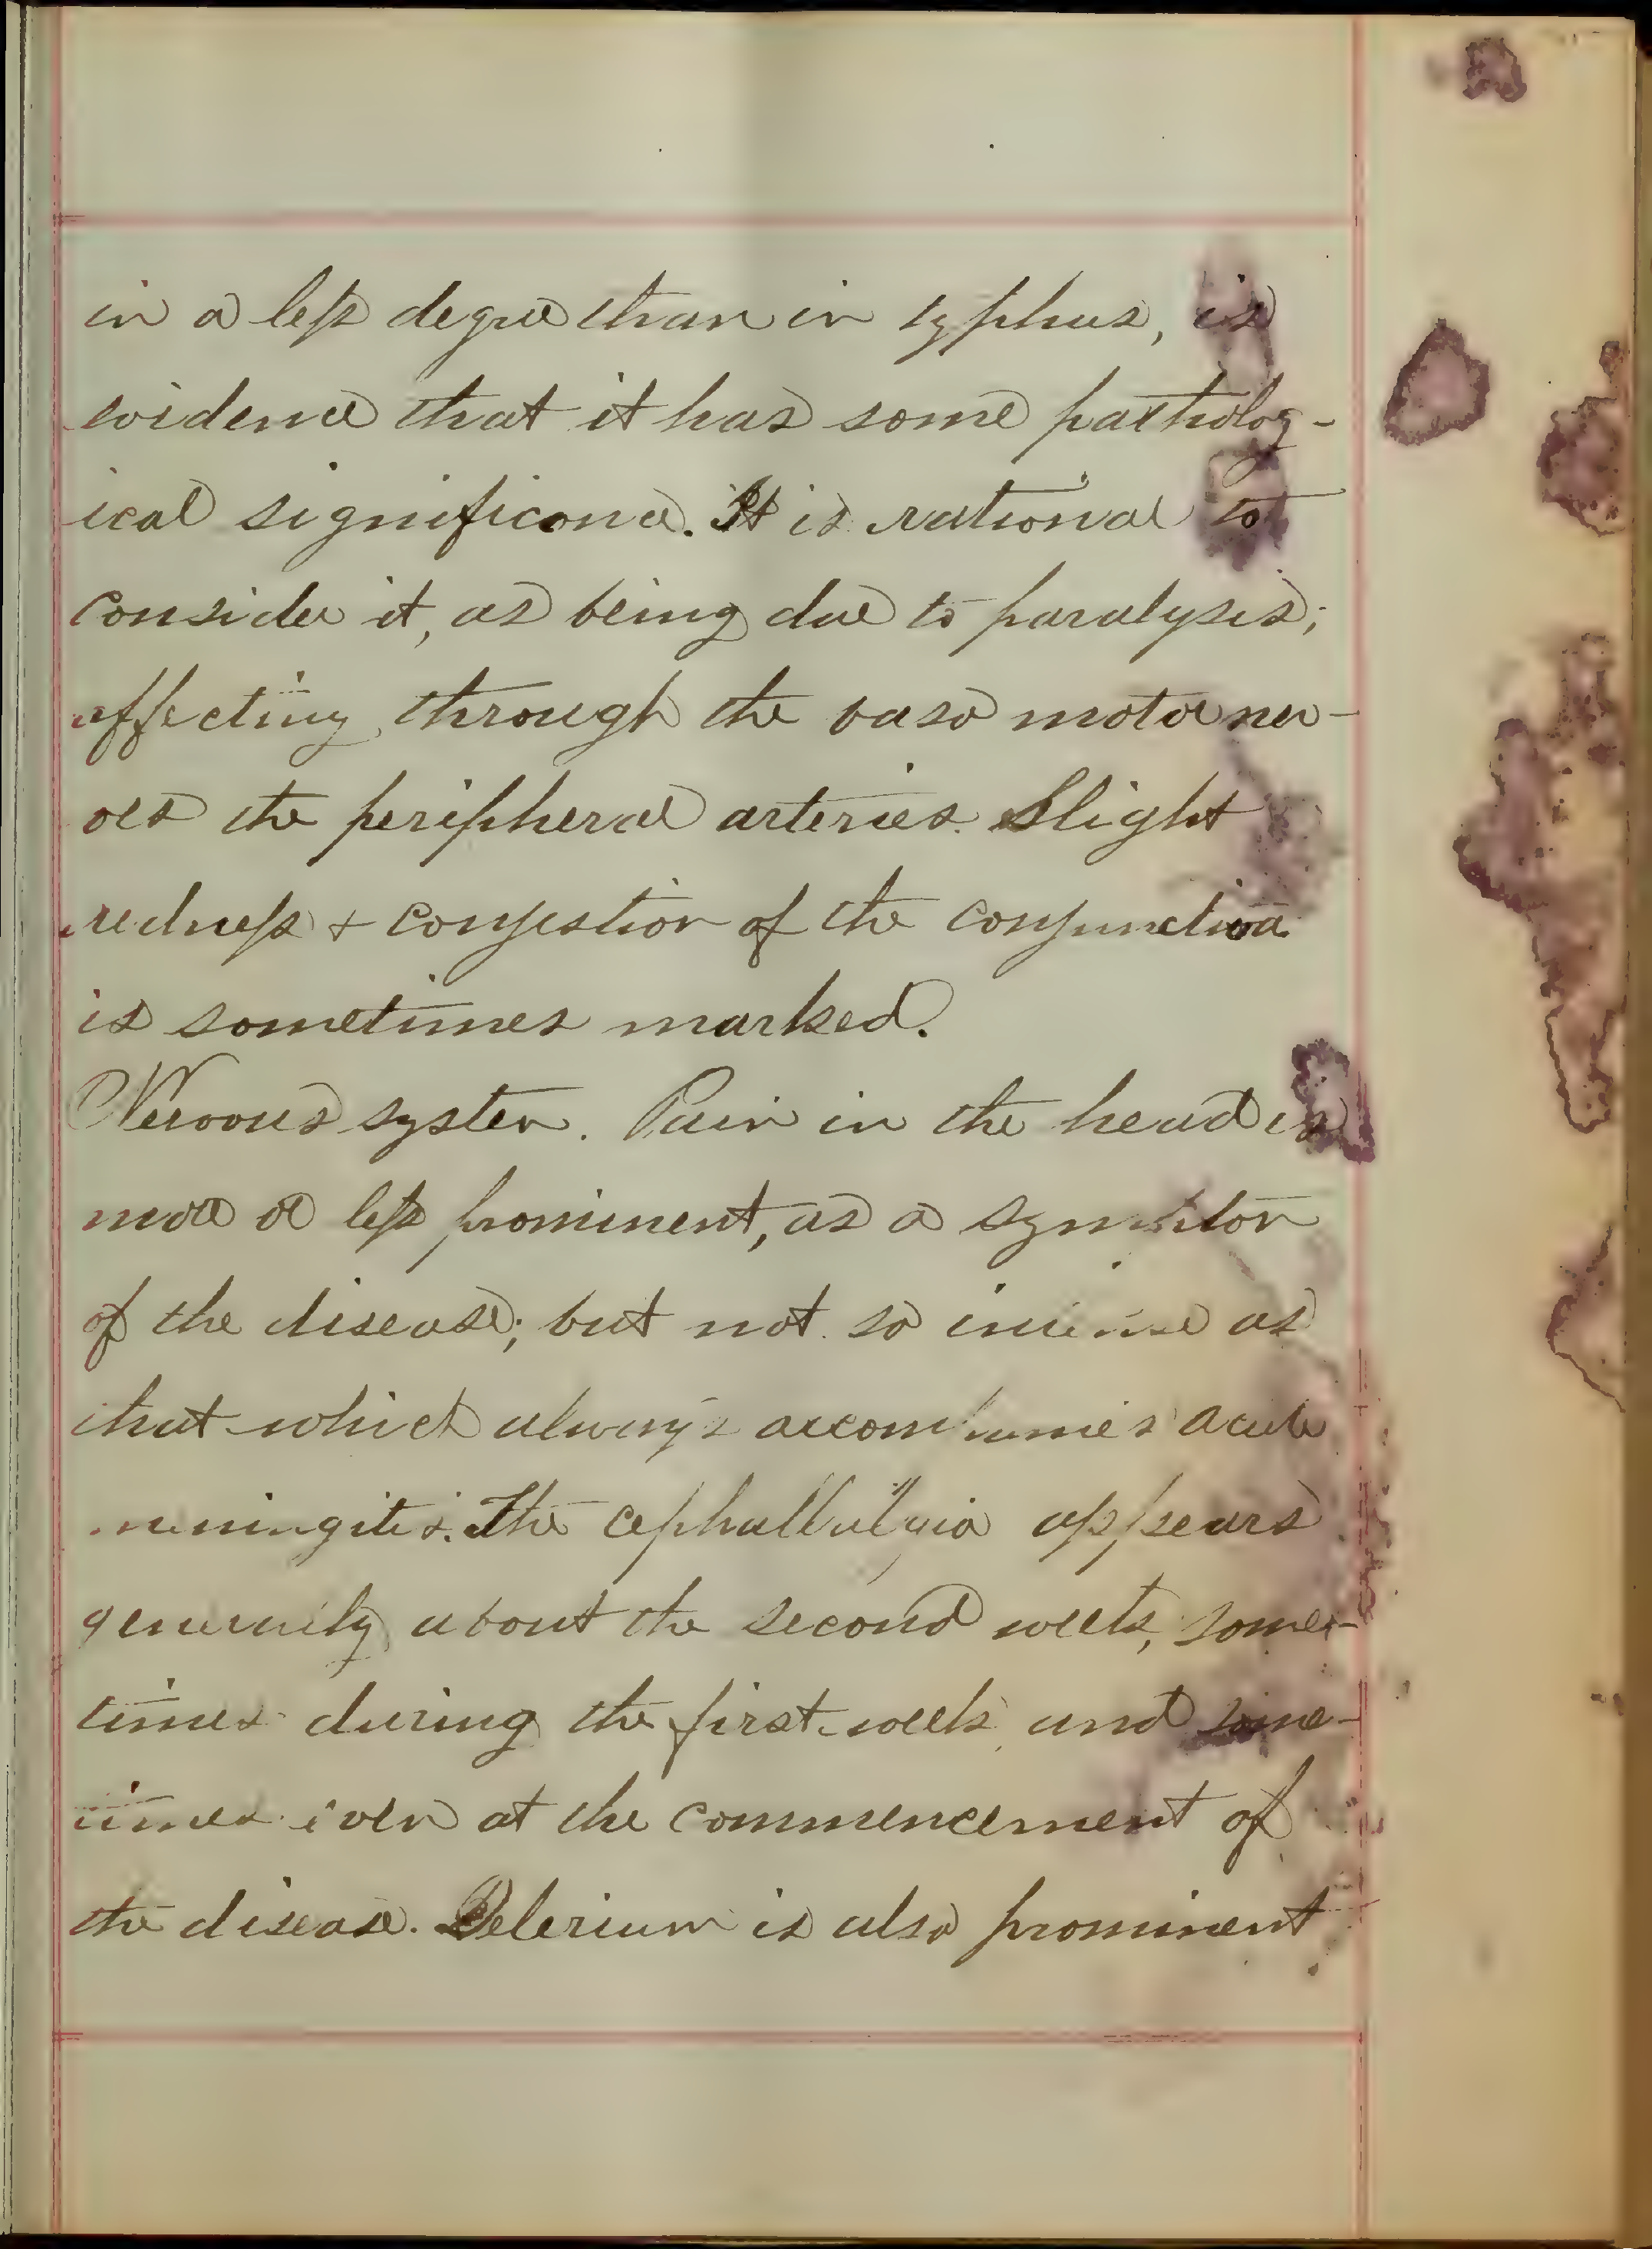 in a less degree than in typhus, is
evidence that it has some patholog-
ical significance. It is rational to
consider it, as being due to paralysis;
affecting through the vaso motor ner-
ves the peripheral arteries. Slight
redness + congestion of the conjunctiva
is sometimes marked.
Nervous system. Pain in the head is
more or less prominent, as a symptom
of the disease; but not so intense as
that which always accompanies acute
meningitis. The cephallalgia appears
generally about the second week, some-
times during the first week and some-
times even at the commencement of
the disease. Delerium is also prominent